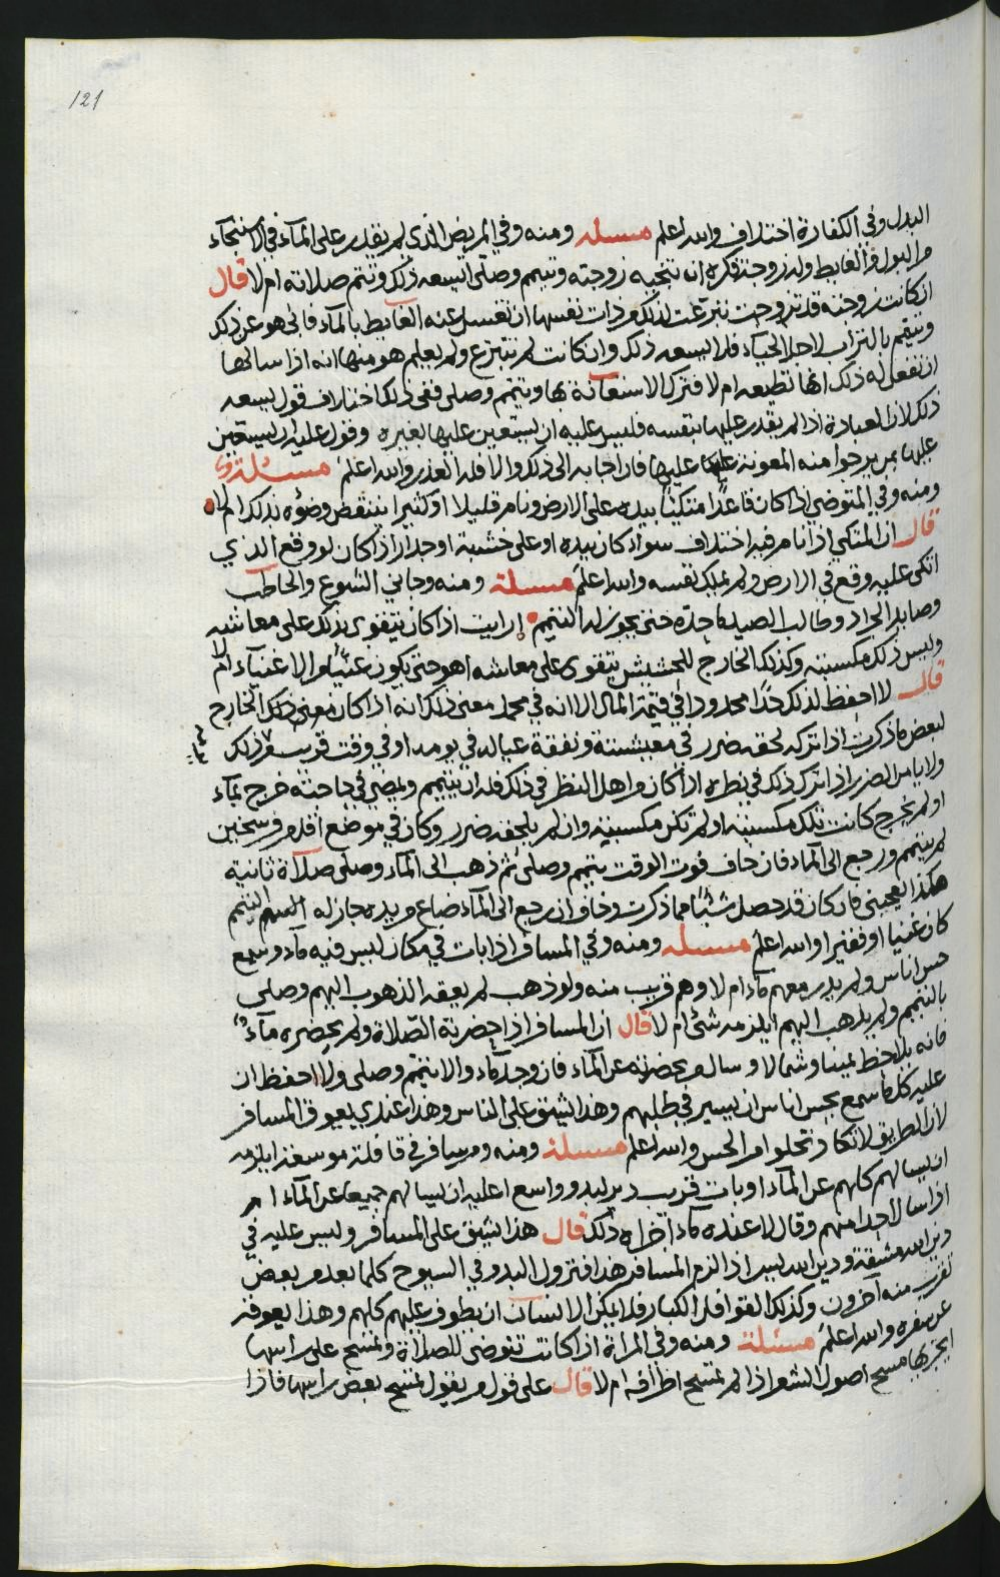 121
البدل وفي الكفارة اختلاف والله اعلم مسئله ومنه وفي المريض الذي لم يقدر على المآء في الاستنجآء
من البول والغايط وله زوجة فكره ان تنجيه زوجته وتيمم وصلى ايسعه ذلك وتتم صلاته ام لا قال
ان كانت زوجته قد تبرعت لذلك من ذات نفسها ان تغسل عنه الغايط بالمآء فابى هو عن ذلك
وتيمم بالتراب لاجل الحيآء فلا يسعه ذلك وان كانت لم تتبرع ولم يعلم هو منها انه اذا سالها
ان تفعل له ذلك انها تطيعه ام لا فترك الاستعانة بها وتيمم وصلى ففي ذلك اختلاف قول يسعه
ذلك لان العبادة اذا لم يقدر عليها بنفسه فليس عليه ان يستعين عليها بغيره وقول عليه ان يستعين
عليها بمن يرجوا منه المعونة عليها فان اجابه الى ذلك والا فله العذر والله اعلم مسئلة
ومنه وفي المتوضي اذا كان قاعدًا متكيًا بيده على الارض ونام قليلا او كثيرا اينتقض وضؤه بذلك ام لا
قال ان المتكي اذا نام فيه اختلاف سواء كان بيده او على خشبة او جدار اذا كان لو وقع الذي
اتكى عليه وقع في الارض ولم يملك نفسه والله اعلم مسئلة ومنه وجاني الشوع والحاطب
وصايد الجراد وطالب الصيد ما حده حتى يجوز له التيمم ارايت اذا كان يتقوى بذلك على معاشه
وليس ذلك مكسبته وكذلك الخارج للحشيش يتقوى على معاشه اهو حتى يكون غنيًا من الاغنيآء ام لا
قال لا احفظ لذلك حدًا محدودا في قيمة المال الا انه في مجمل معنى ذلك انه اذا كان معنى ذلك الخارج
لبعض ما ذكرت اذا تركه لحقه ضرر في معيشته ونفقة عياله في يومه او في وقت قوت ذلك
ولا يامن الضرر اذا ترك ذلك في نظره اذا كان من اهل النظر في ذلك فله ان يتيمم ويمضي في حاجته خرج بمآء
او لم يخرج كانت تلك مكسبته او لم تكن مكسبته وان لم يلحقه ضرر وكان في موضع اقل من فرسخين
لم يتيمم ورجع الى المآء فان خاف فوت الوقت تيمم وصلى ثم ذهب الى المآء وصلى صلآة ثانية
هكذا يعجبني فان كان قد حصل شيئًا مما ذكرت وخاف ان رجع الى المآء ضاع من يده جاز له التيمم
كان غنيا او فقيرا والله اعلم مسئله ومنه وفي المسافر اذا بات في مكان ليس فيه مآء وسمع
حس اناس ولم يدر معهم مآء ام لا وهم قريب منه ولو ذهب لم يعقه الذهوب اليهم وصلى
بالتيمم ولم يذهب اليهم ايلزمه شئ ام لا قال ان المسافر اذا حضرته الصلاة ولم يحضره مآء
فانه يلاحظ يمينا وشمالا وسال من بحضرته عن المآء فان وجد مآء والا تيمم وصلى ولا احفظ ان
عليه كلما سمع بحس اناس ان يسير في طلبهم وهذا يشق على الناس وهذا عندي يعوق المسافر
لان الطريق لا تكاد تخلوا من الحس والله اعلم مسئلة ومنه ومن سافر في قافلة موسعة ايلزمه
ان يسالهم كلهم عن المآء او بات قريب واسع اعليه ان يسالهم جميعا عن المآء ام
اذا سال احدا منهم وقال لا عنده مآء اجزاه ذلك قال هذا يشق على المسافر وليس عليه في
دين الله مشقة ودين الله يسر اذا لزم المسافر هذا فنزول البدو في السيوح كلما بعد من بعض
تقرب منه آخرون وكذلك القوافل الكبار فلا يمكن الانسان ان يطوف عليهم كلهم وهذا يعوقه
عن سفره والله اعلم مسئلة ومنه وفي المراة اذا كانت تتوضى للصلآة وتمسح على راسها
ايجزيها مسح اصول الشعر اذا لم تمسح اطرافه ام لا قال على قول من يقول تمسح بعض راسها فاذا